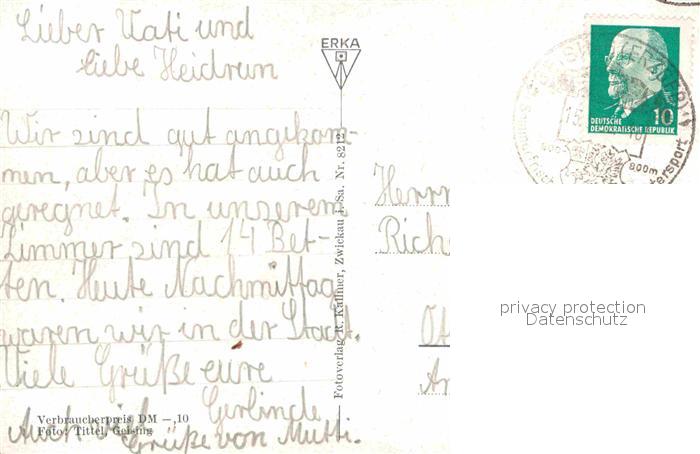 Lieber Vati und
liebe Heidrun
Wir sind gut angekom-
men, aber es hat auch
geregnet. In unserem
Zimmer sind 14 Bet-
ten. Heute Nachmittag
waren wir in der Stadt.
Viele Grüße eure
Gerlinde
Auch viele
Grüße von Mutti.
Verbraucherpreis DM –,10
Foto: Tittel, Geising
ERKA
Fotoverlag R. Kallmer, Zwickau i. Sa. Nr. 8212
DEUTSCHE
DEMOKRATISCHE REPUBLIK
10
800m
Herrn
privacy protection
Datenschutz